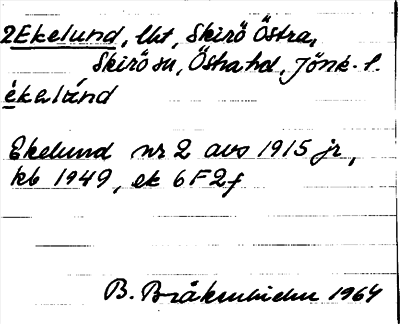 2 Ekelund, lht, Skirö Östra,
Skirö sn, Östra hd, Jönk. l.
èkəlánd
Ekelund nr 2 avs 1915 jr,
kb 1949, ek 6F2f
B. 1964